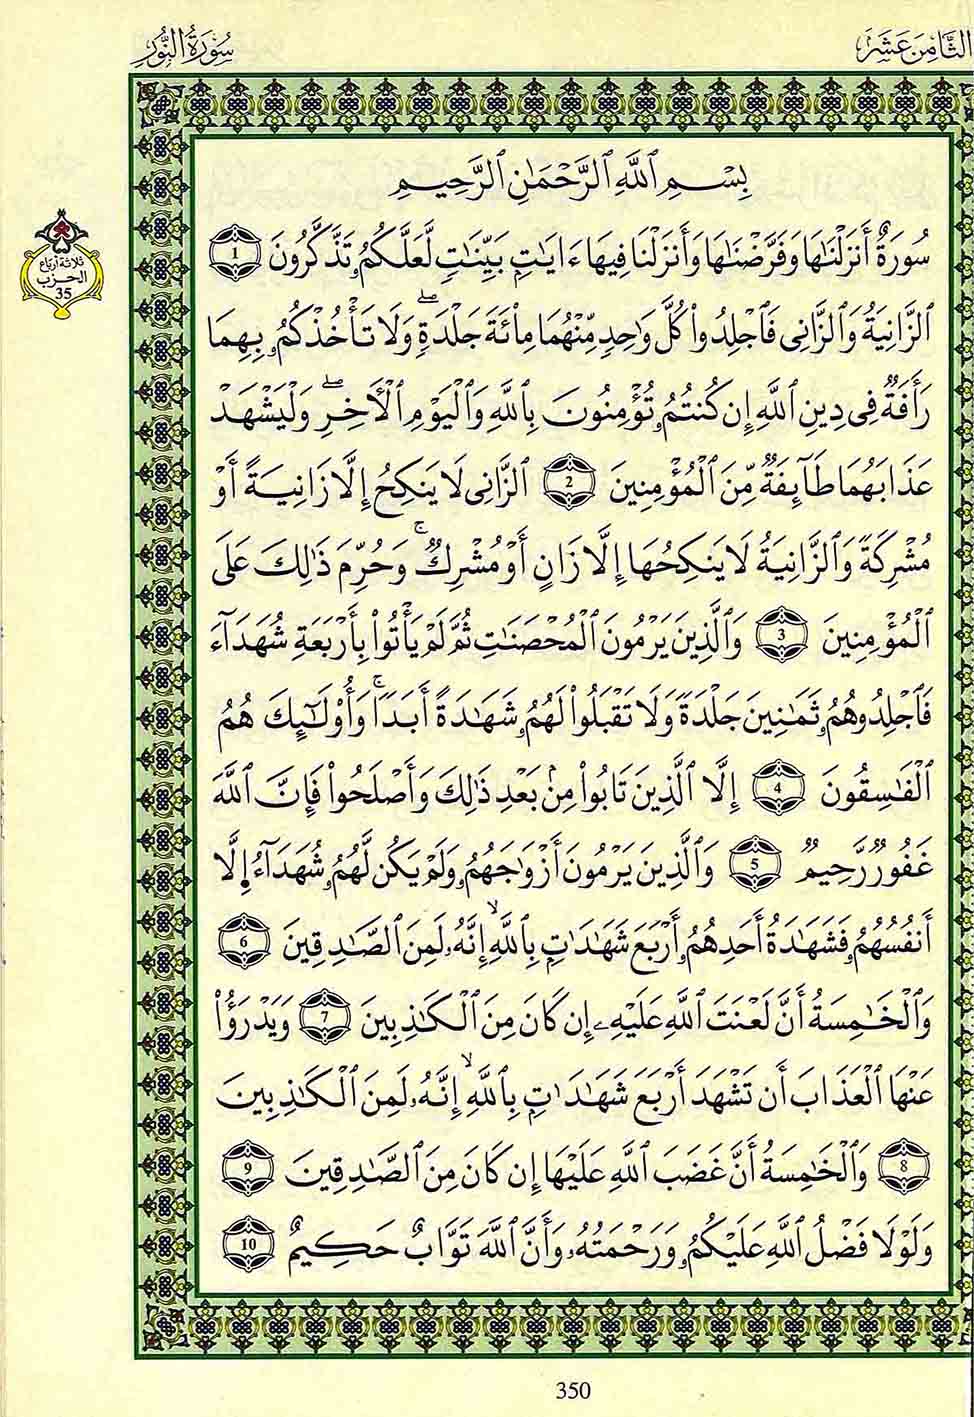 الثَّامِنَ عَشَرَ
سُورَةُ النُّورِ
بِسْمِ ٱللَّهِ ٱلرَّحْمَٰنِ ٱلرَّحِيمِ
سُورَةٌ أَنزَلْنَٰهَا وَفَرَّضْنَٰهَا وَأَنزَلْنَا فِيهَا ءَايَٰتِۭ بَيِّنَٰتٖ لَّعَلَّكُمُۥ تَذَّكَّرُونَ 1
ٱلزَّانِيَةُ وَٱلزَّانِي فَٱجْلِدُوا۟ كُلَّ وَٰحِدٍ مِّنْهُمَا مِا۟ئَةَ جَلْدَةٍۖ وَلَا تَأْخُذْكُمُۥ بِهِمَا
رَأَفَةٌ فِي دِينِ ٱللَّهِ إِن كُنتُمُۥ تُؤْمِنُونَ بِٱللَّهِ وَٱلْيَوْمِ ٱلْأٓخِرِۖ وَلْيَشْهَدْ
عَذَابَهُمَا طَآئِفَةٌ مِّنَ ٱلْمُؤْمِنِينَ 2 ٱلزَّانِي لَا يَنكِحُ إِلَّا زَانِيَةً أَوْ
مُشْرِكَةً وَٱلزَّانِيَةُ لَا يَنكِحُهَا إِلَّا زَانٍ أَوْ مُشْرِكٌۚ وَحُرِّمَ ذَٰلِكَ عَلَى
ٱلْمُؤْمِنِينَ 3 وَٱلَّذِينَ يَرْمُونَ ٱلْمُحْصَنَٰتِ ثُمَّ لَمْ يَأْتُوا۟ بِأَرْبَعَةِ شُهَدَآءَ
فَٱجْلِدُوهُمُۥ ثَمَٰنِينَ جَلْدَةً وَلَا تَقْبَلُوا۟ لَهُمُۥ شَهَٰدَةً أَبَدًاۚ وَأُو۟لَٰٓئِكَ هُمُ
ٱلْفَٰسِقُونَ 4 إِلَّا ٱلَّذِينَ تَابُوا۟ مِنۢ بَعْدِ ذَٰلِكَ وَأَصْلَحُوا۟ فَإِنَّ ٱللَّهَ
غَفُورٌ رَّحِيمٌ 5 وَٱلَّذِينَ يَرْمُونَ أَزْوَٰجَهُمُۥ وَلَمْ يَكُن لَّهُمُۥ شُهَدَآءُ إِلَّا
أَنفُسُهُمُۥ فَشَهَٰدَةُ أَحَدِهِمُۥ أَرْبَعَ شَهَٰدَٰتِۭ بِٱللَّهِۙ إِنَّهُۥ لَمِنَ ٱلصَّٰدِقِينَ 6
وَٱلْخَٰمِسَةُ أَنَّ لَعْنَتَ ٱللَّهِ عَلَيْهِۦ إِن كَانَ مِنَ ٱلْكَٰذِبِينَ 7 وَيَدْرَؤُا۟
عَنْهَا ٱلْعَذَابَ أَن تَشْهَدَ أَرْبَعَ شَهَٰدَٰتِۭ بِٱللَّهِۙ إِنَّهُۥ لَمِنَ ٱلْكَٰذِبِينَ
8 وَٱلْخَٰمِسَةُ أَنَّ غَضَبَ ٱللَّهِ عَلَيْهَا إِن كَانَ مِنَ ٱلصَّٰدِقِينَ 9
وَلَوْلَا فَضْلُ ٱللَّهِ عَلَيْكُمُۥ وَرَحْمَتُهُۥ وَأَنَّ ٱللَّهَ تَوَّابٌ حَكِيمٌ 10
ثلاثة أرباع
الحزب
35
350